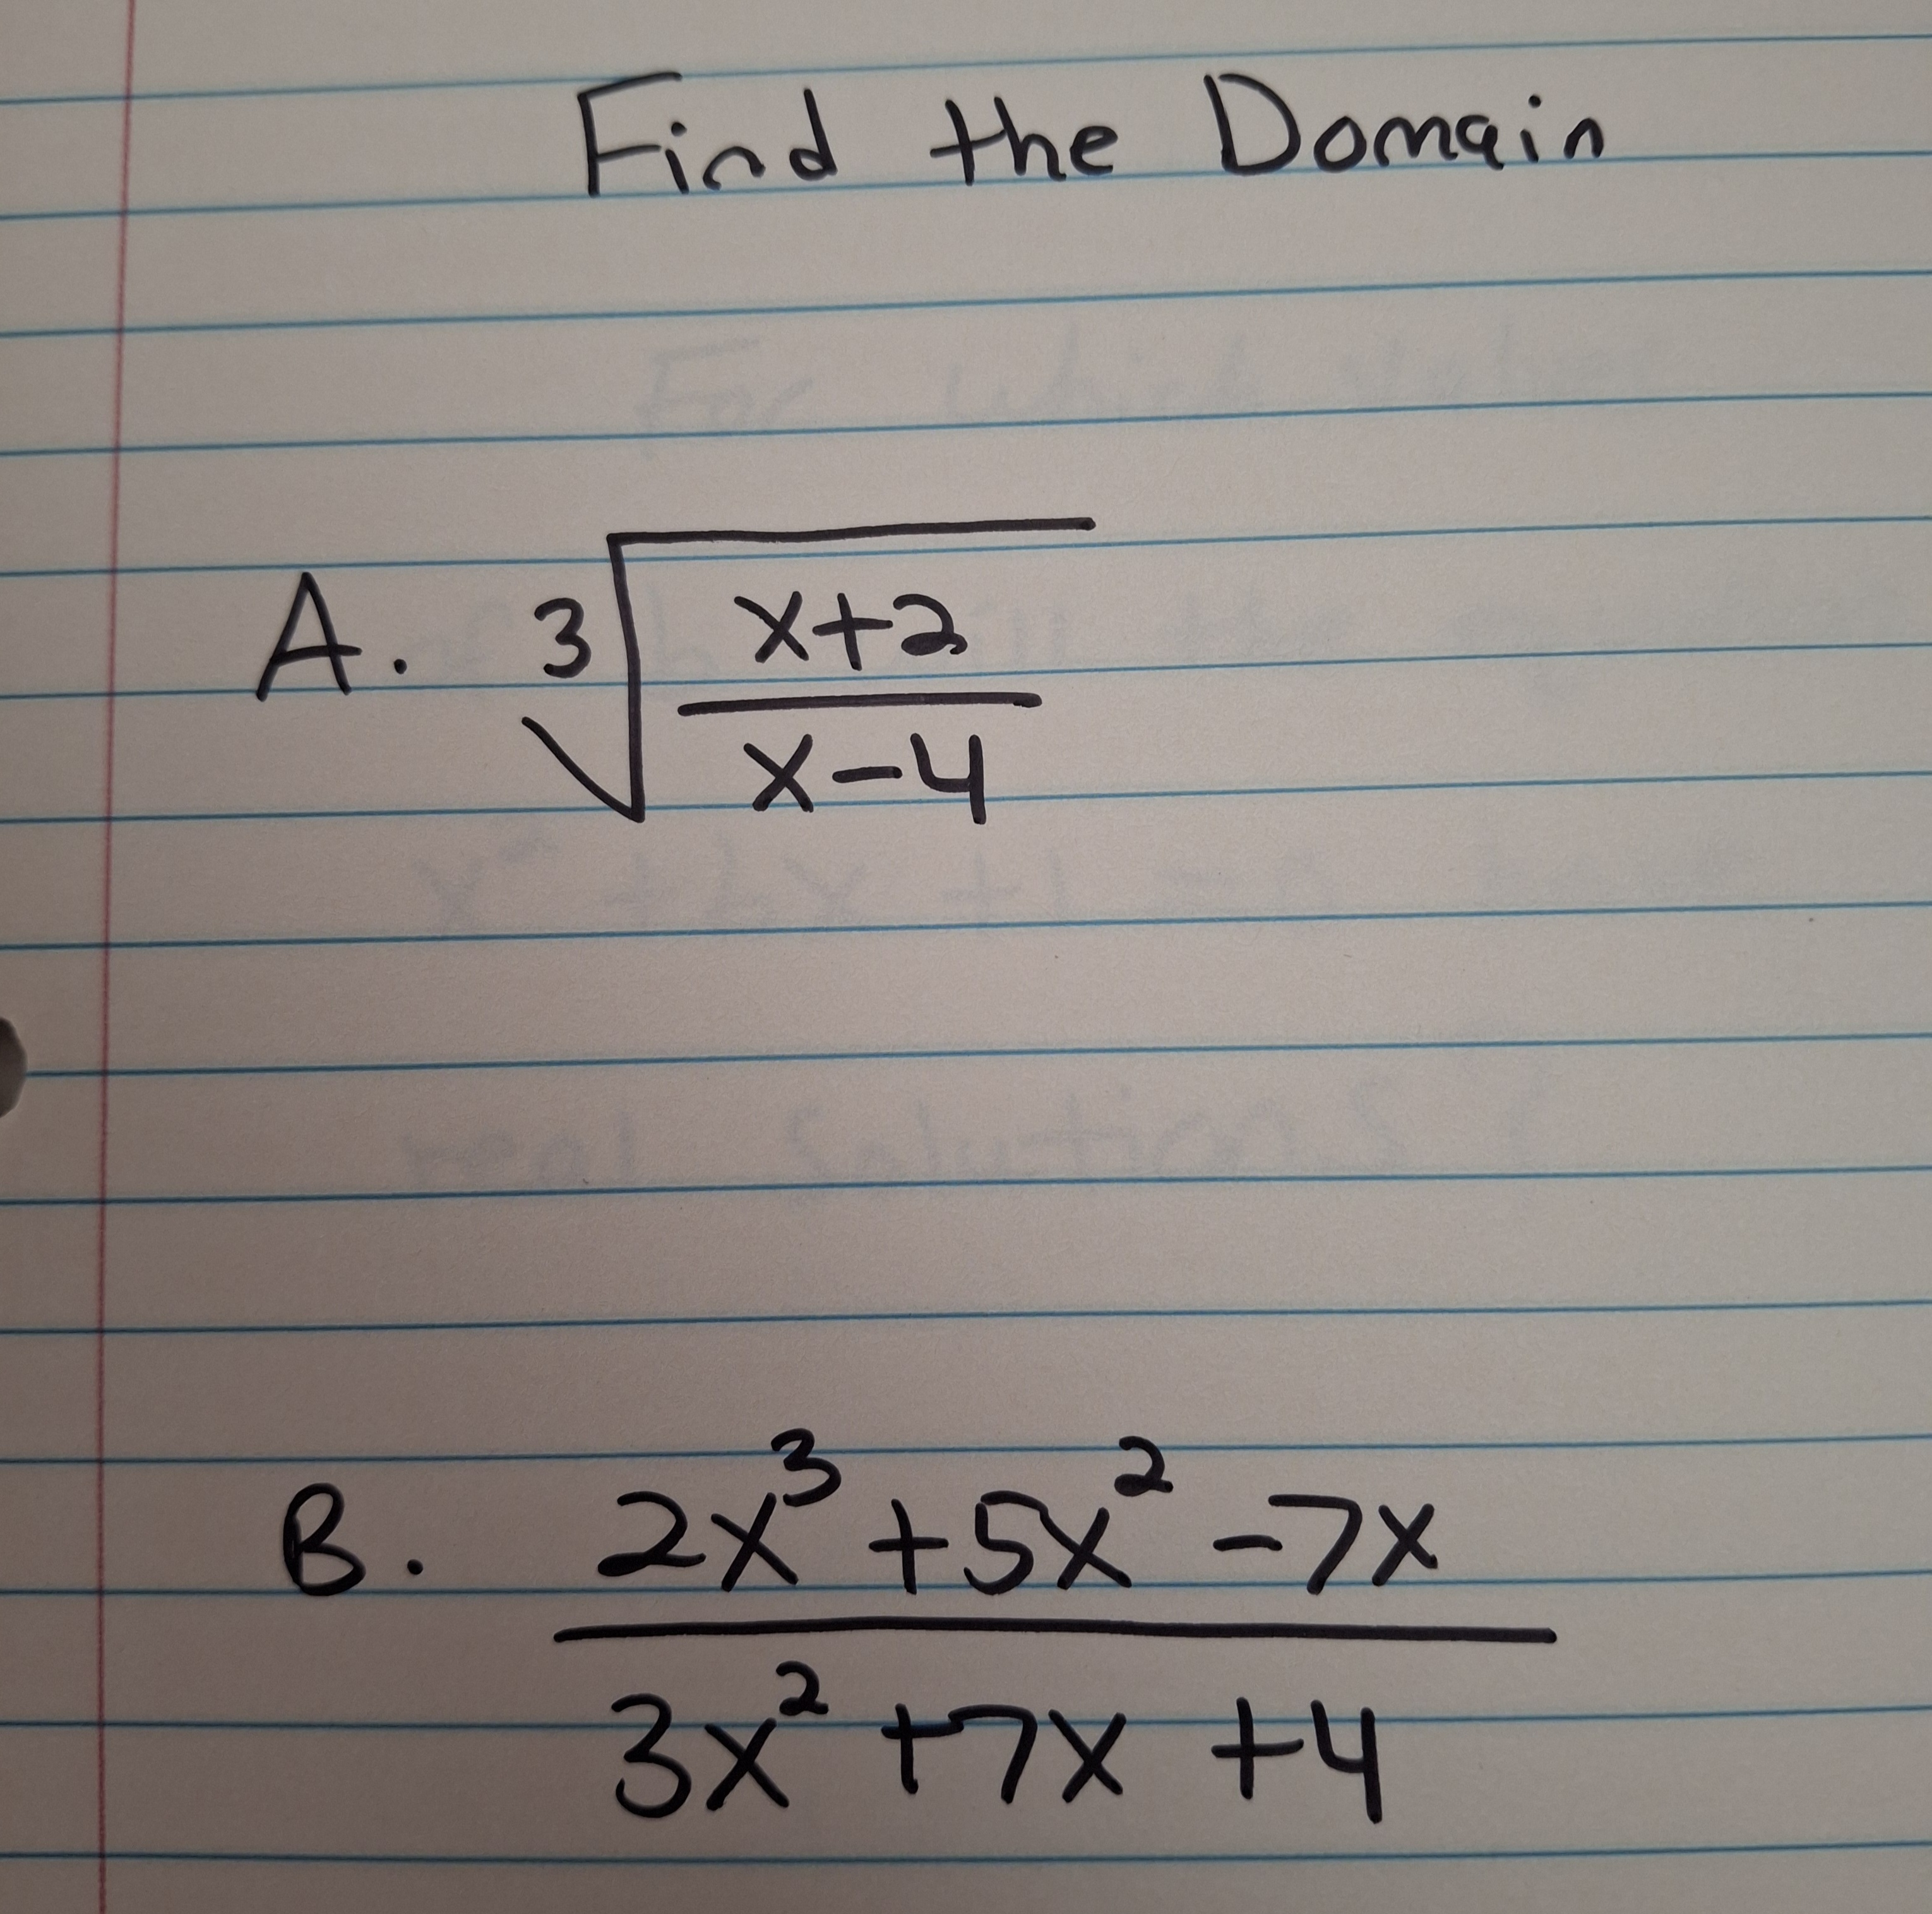 Find the Domain
A. ∛((x+2)/(x-4))
B. (2x³+5x²-7x)/(3x²+7x+4)